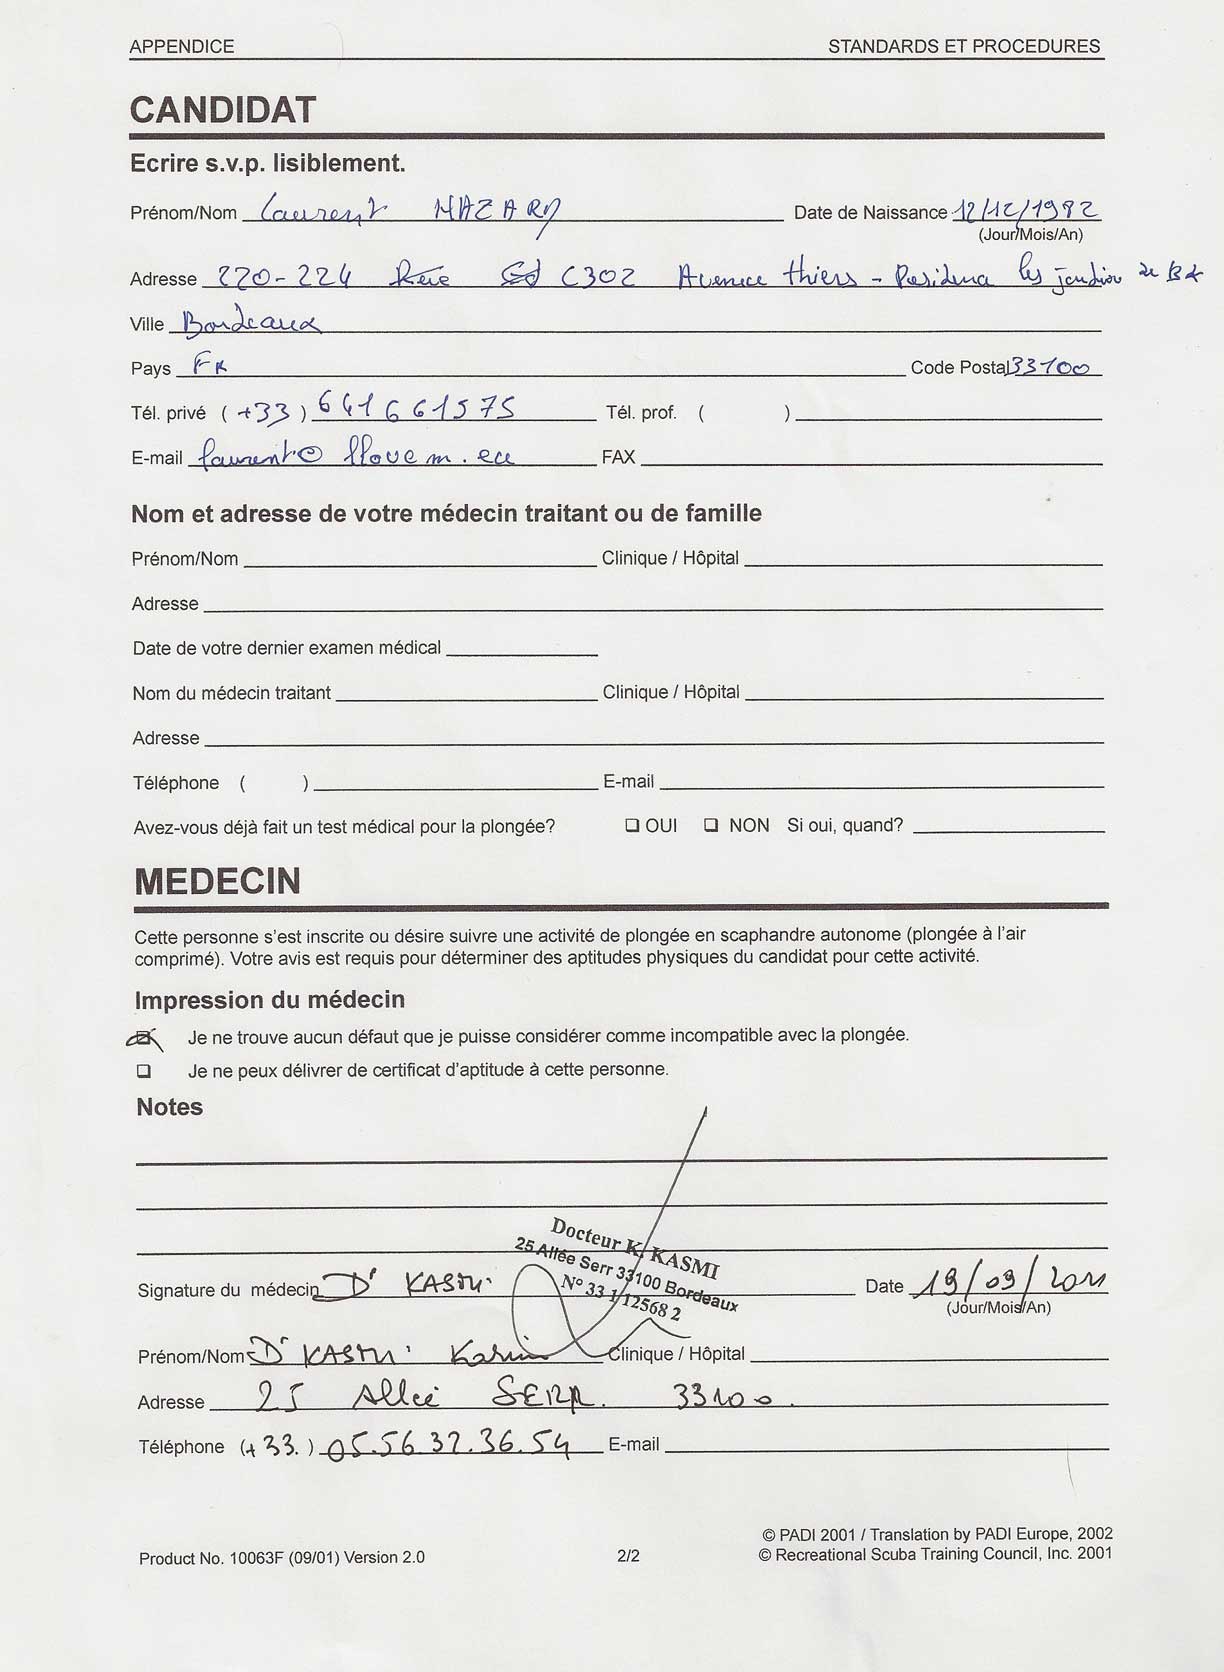 APPENDICE STANDARDS ET PROCEDURES
CANDIDAT
Ecrire s.v.p. lisiblement.
Prénom/Nom Laurent MAZARD Date de Naissance 12/12/1982
(Jour/Mois/An)
Adresse 220-224 C302 Avenue thiers - Residence les de
Ville Bordeaux
Pays FR Code Postal 33100
Tél. privé (+33) 641661575 Tél. prof. ( )
E-mail laurent@llovem.eu FAX
Nom et adresse de votre médecin traitant ou de famille
Prénom/Nom Clinique / Hôpital
Adresse
Date de votre dernier examen médical
Nom du médecin traitant Clinique / Hôpital
Adresse
Téléphone ( ) E-mail
Avez-vous déjà fait un test médical pour la plongée? ❏ OUI ❏ NON Si oui, quand?
MEDECIN
Cette personne s'est inscrite ou désire suivre une activité de plongée en scaphandre autonome (plongée à l'air
comprimé). Votre avis est requis pour déterminer des aptitudes physiques du candidat pour cette activité.
Impression du médecin
Je ne trouve aucun défaut que je puisse considérer comme incompatible avec la plongée.
❏ Je ne peux délivrer de certificat d'aptitude à cette personne.
Notes
Docteur K. KASMI
25 Allée Serr 33100 Bordeaux
N° 33 1 12568 2
Signature du médecin Dr KASMI Date 19/09/2011
(Jour/Mois/An)
Prénom/Nom Dr KASMI Karim Clinique / Hôpital
Adresse 25 Allée SERR. 33100.
Téléphone (+33.) 05.56.32.36.54 E-mail
© PADI 2001 / Translation by PADI Europe, 2002
Product No. 10063F (09/01) Version 2.0 2/2 © Recreational Scuba Training Council, Inc. 2001